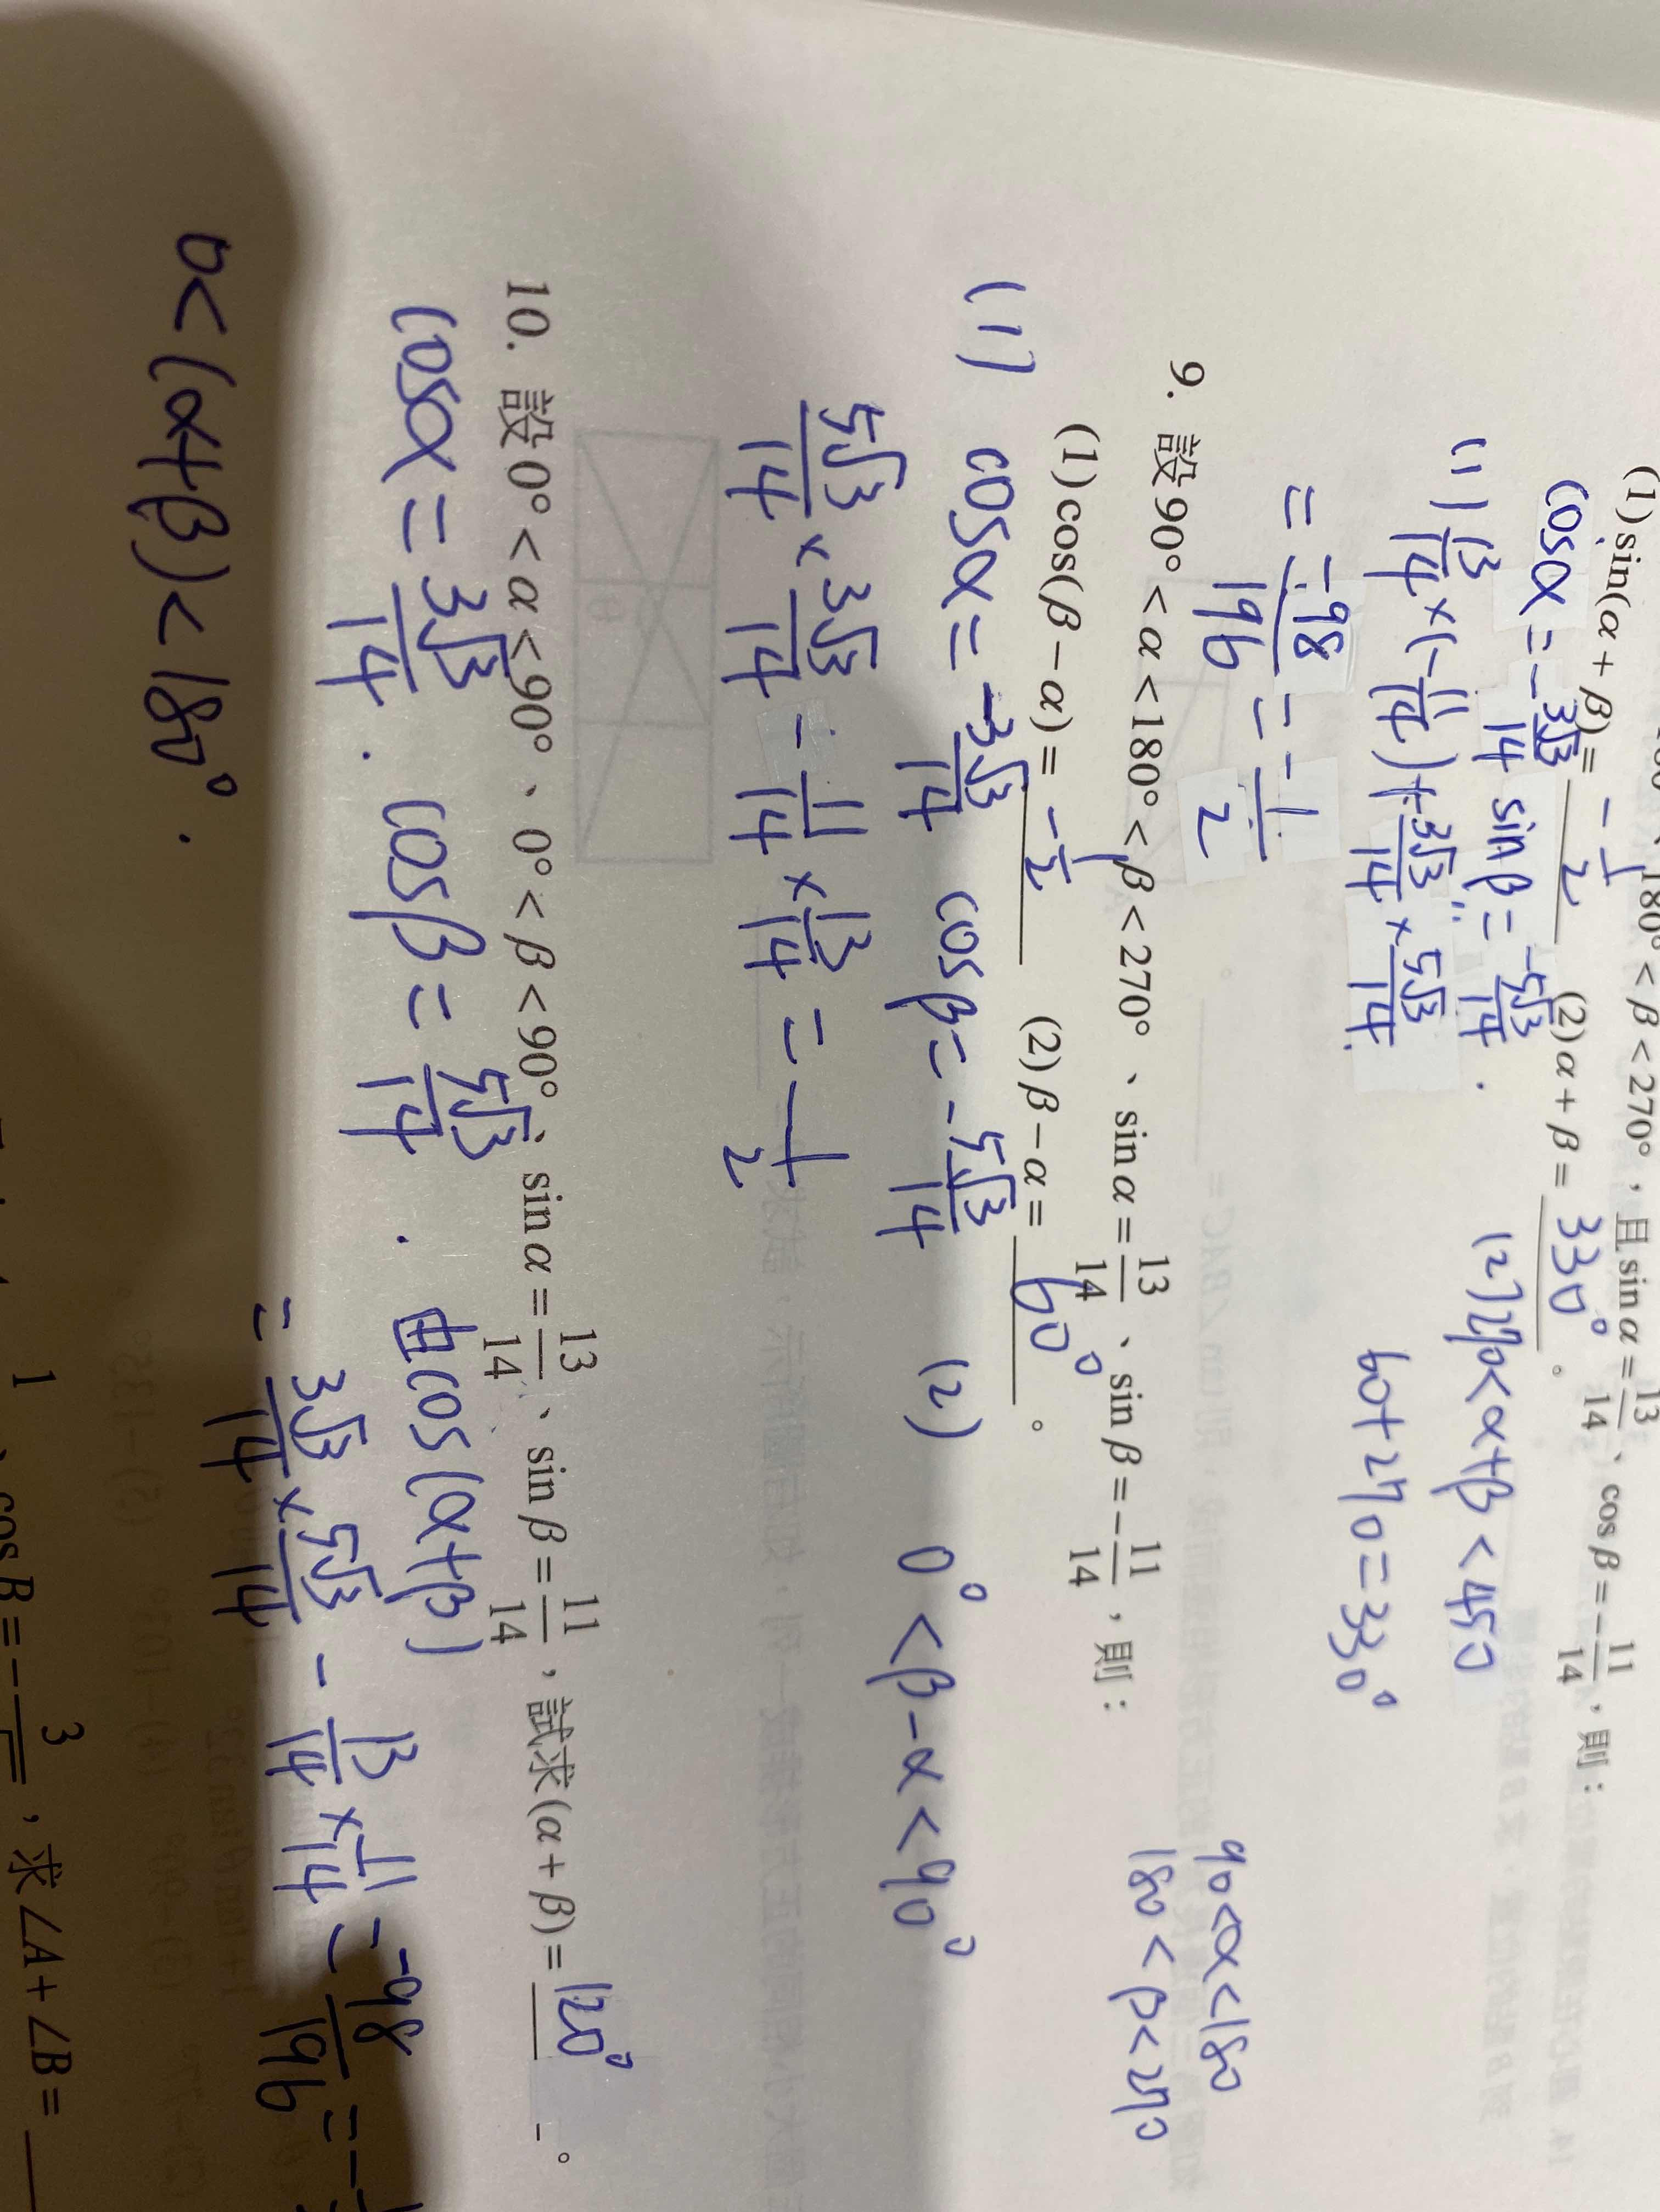 180° < β < 270°，且 sin α = 13/14、cos β = -11/14，則：
(1) sin(α + β) = -1/2 (2) α + β = 330° 。
cosα = -3√3/14 sinβ = -5√3/14 .
(1) 13/14 × (-11/14) + -3√3/14 × -5√3/14 .
= -98/196 = -1/2
(2) 270 < α+β < 450
60+270 = 330°
9. 設 90° < α < 180° < β < 270°、sin α = 13/14、sin β = -11/14，則：
90 < α < 180
180 < β < 270
(1) cos(β - α) = -1/2 (2) β - α = 60° 。
(1) cosα = -3√3/14 cosβ = -5√3/14 (2) 0° < β - α < 90°
5√3/14 × 3√3/14 - 11/14 × 13/14 = -1/2
10. 設 0° < α < 90°、0° < β < 90°、sin α = 13/14、sin β = 11/14，試求(α + β) = 120° 。
cosα = 3√3/14 . cosβ = 5√3/14 . 由cos(α+β)
= 3√3/14 × 5√3/14 - 13/14 × 11/14 = -98/196 = -
0 < (α+β) < 180° .
cos B = - 3 ，求∠A + ∠B =